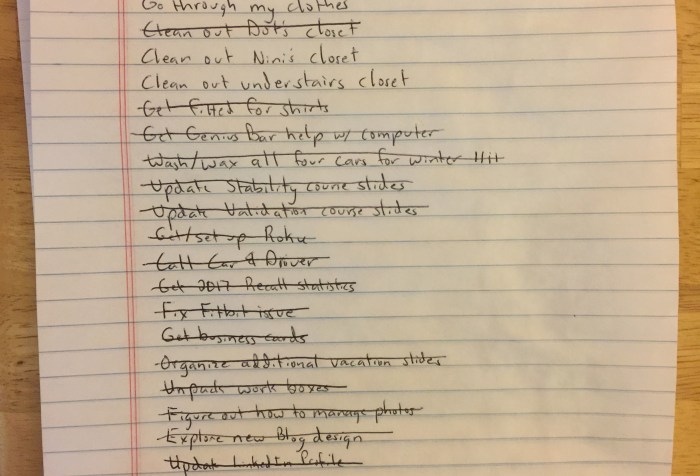 Go through my clothes
Clean out Dot's closet
Clean out Nini's closet
Clean out understairs closet
Get fitted for shirts
Get Genius Bar help w/ computer
Wash/wax all four cars for winter
Update Stability course slides
Update Validation course slides
Get/set up Roku
Call Car & Driver
Get 2017 Recall statistics
Fix Fitbit issue
Get business cards
Organize additional vacation slides
Unpack work boxes
Figure out how to manage photos
Explore new Blog design
Update LinkedIn Profile